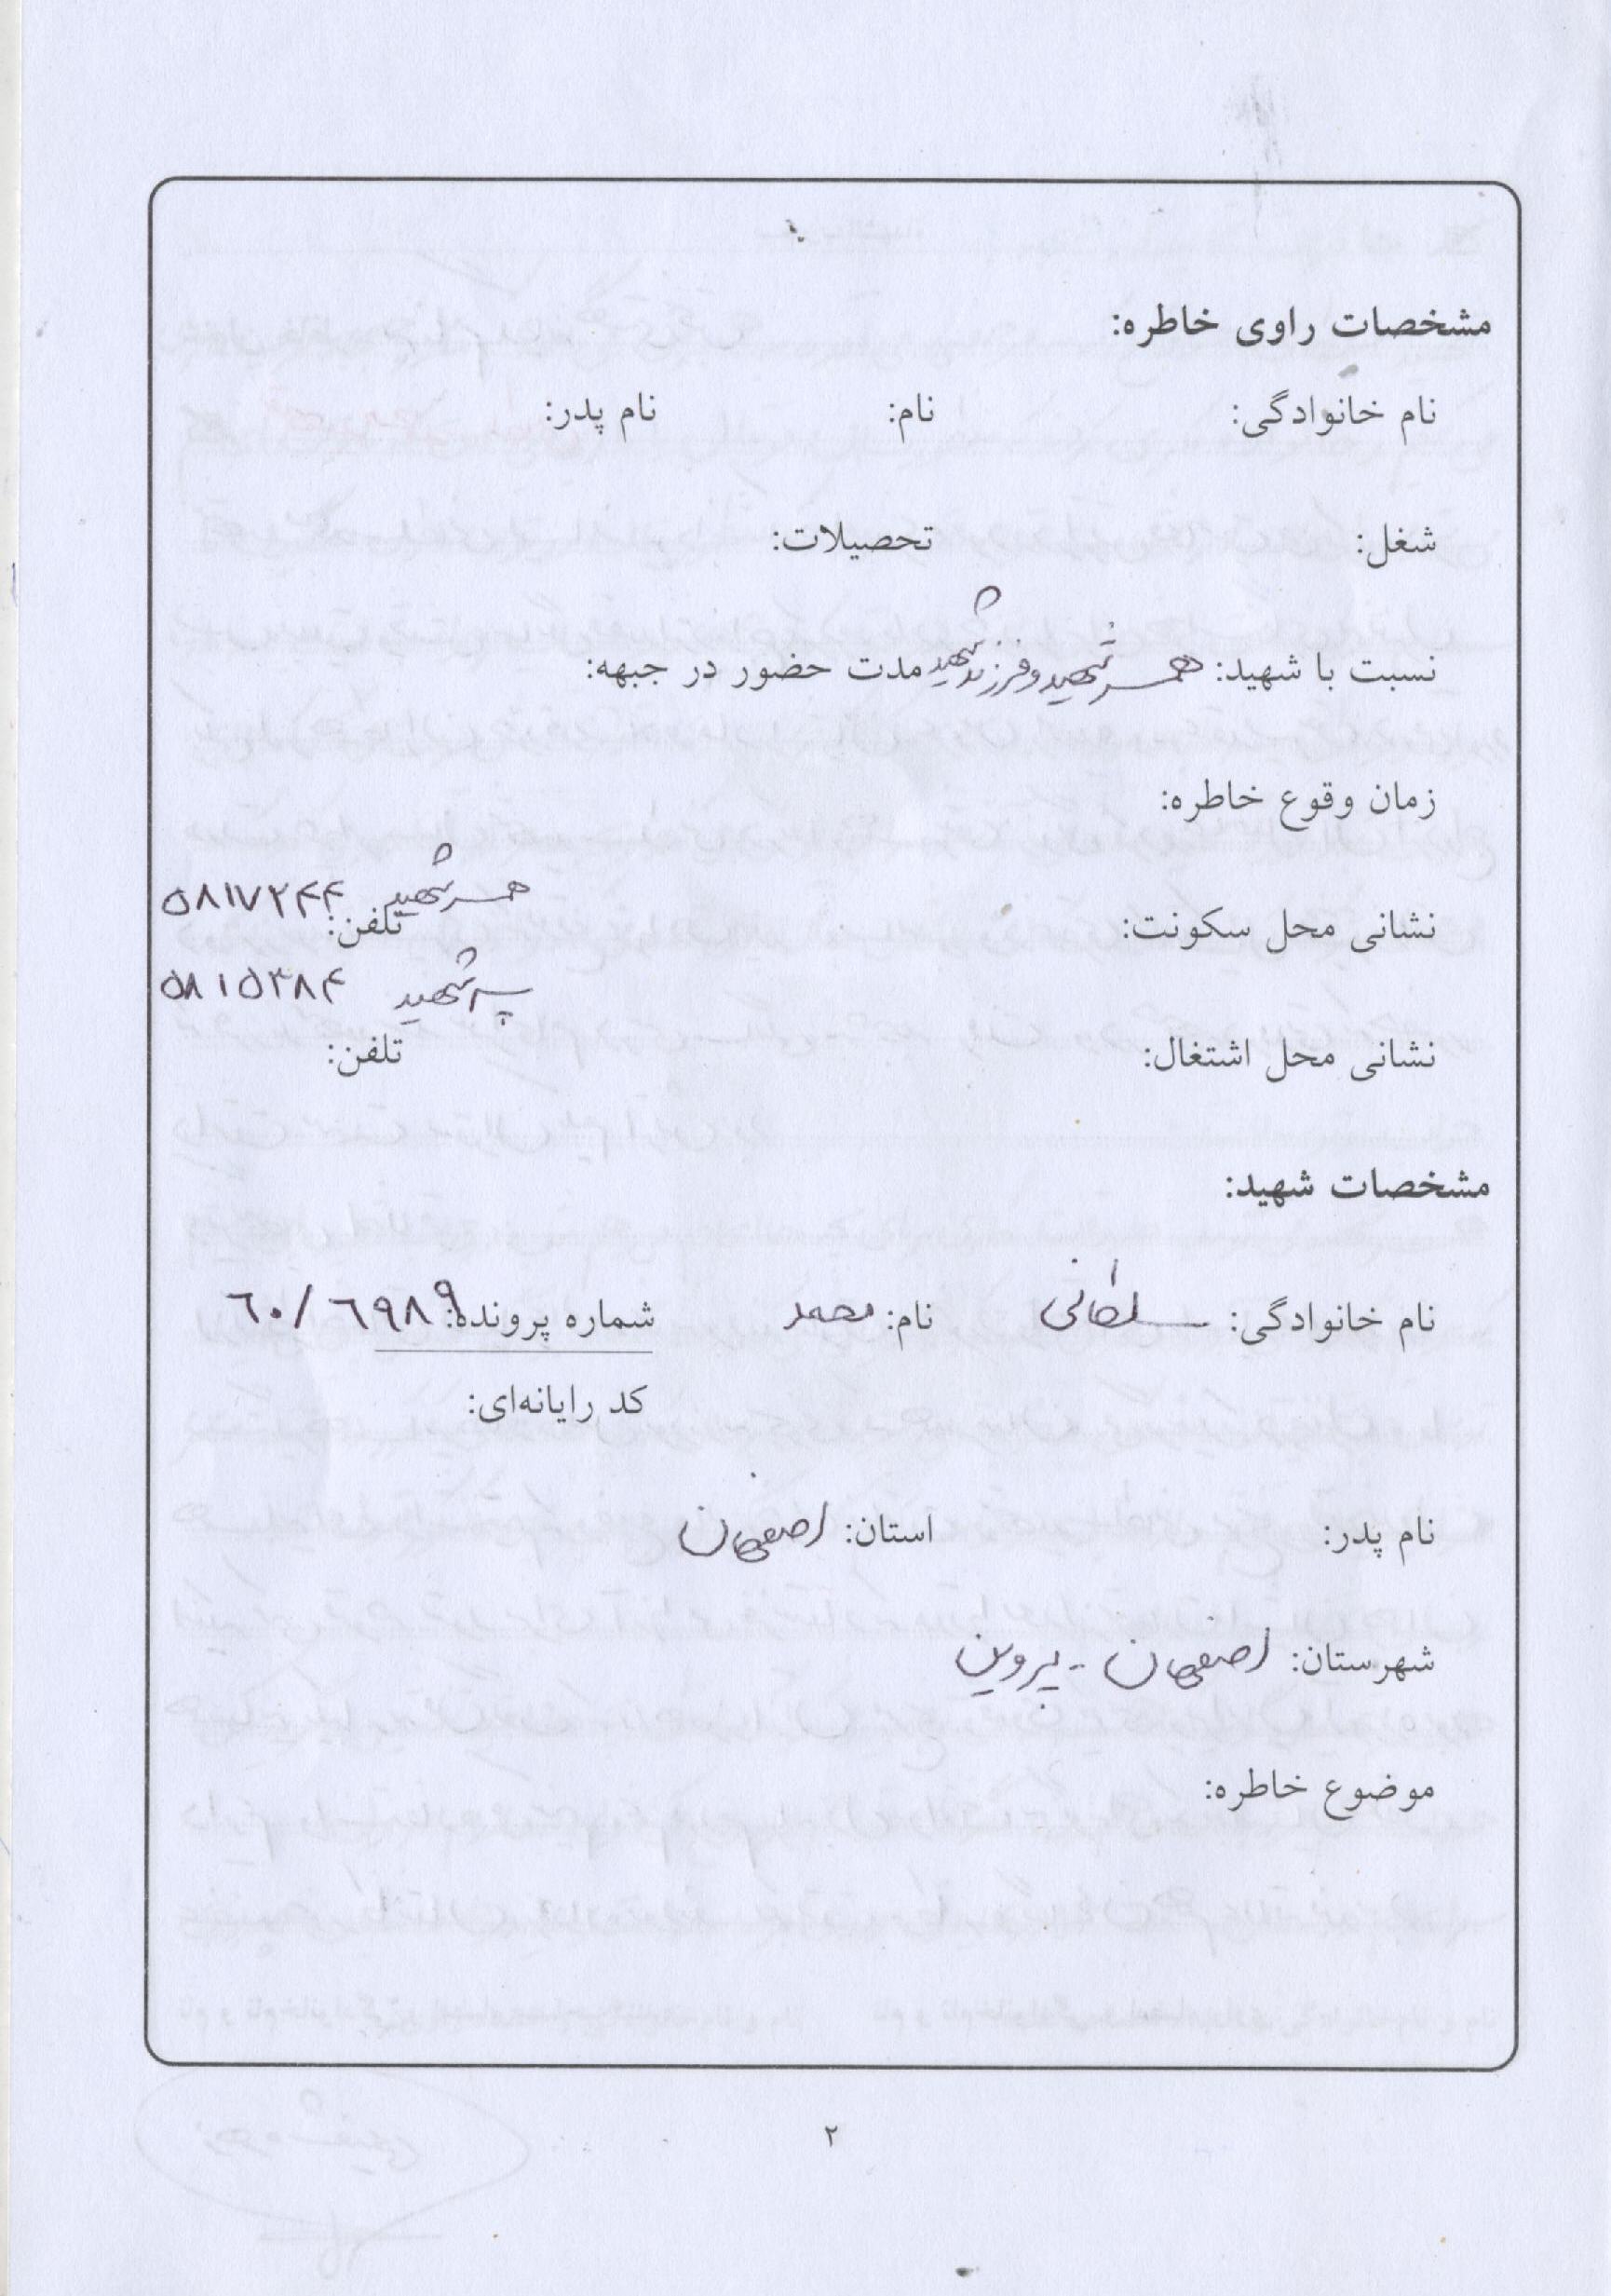 مشخصات راوی خاطره:
نام خانوادگی: نام: نام پدر:
شغل: تحصیلات:
نسبت با شهید: همسر شهید و فرزند شهید مدت حضور در جبهه:
زمان وقوع خاطره:
نشانی محل سکونت: تلفن: همسر شهید ۵۸۱۷۲۴۴
پسر شهید ۵۸۱۵۳۸۴
نشانی محل اشتغال: تلفن:
مشخصات شهید:
نام خانوادگی: سلطانی نام: محمد شماره پرونده: ۶۰/۶۹۸۹
کد رایانه‌ای:
نام پدر: استان: اصفهان
شهرستان: اصفهان - پروین
موضوع خاطره:
۲